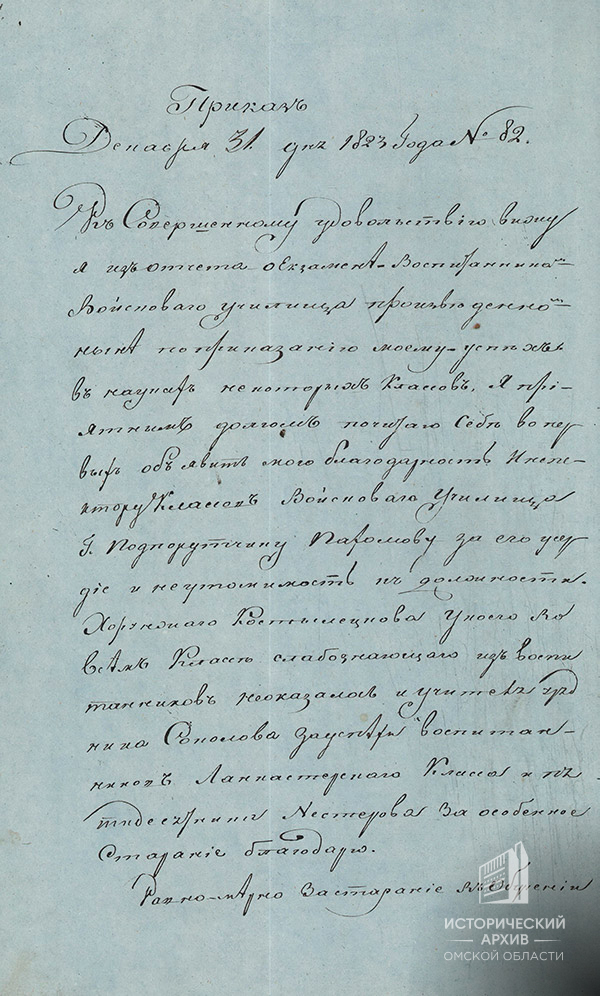 Приказъ
Декабря 31 дня 1823 Года № 82.
Къ Совершенному удовольствію вижу
я изъ отчета о Екзаменѣ Воспитанниковъ
Войсковаго училища произведенномъ
нынѣ по приказанію моему успѣхъ
въ наукахъ некоторыхъ Классовъ, я прі-
ятнымъ долгомъ почитаю Себѣ во пер
выхъ объявить мою благодарность Инспе-
ктору Классовъ Войсковаго Училища
Г. Подпорутчику Пахомову за его усер
діе и неутомимость къ должности.
Хорунжаго Костылецкова у коего во
всѣмъ Классѣ слабознающаго изъ воспи
танниковъ неоказалось и учителя уряд
ника Соколова за успѣхи воспитан-
никовъ Ланкастерскаго Класса и пя
тидесятника Нестерова за особенное
Стараніе благодарю.
Равно-мѣрно За стараніе
ИСТОРИЧЕСКИЙ
АРХИВ
ОМСКОЙ ОБЛАСТИ